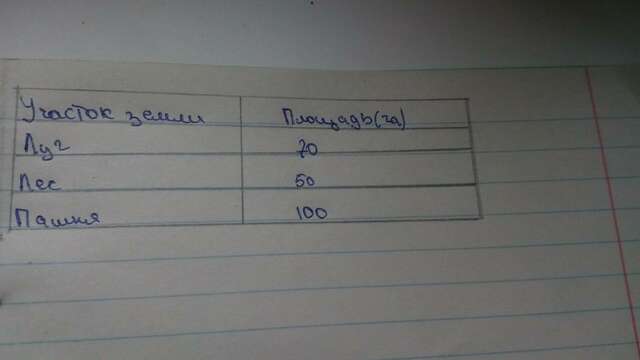 Участок земли Площадь(га)
Луг 70
Лес 50
Пашня 100